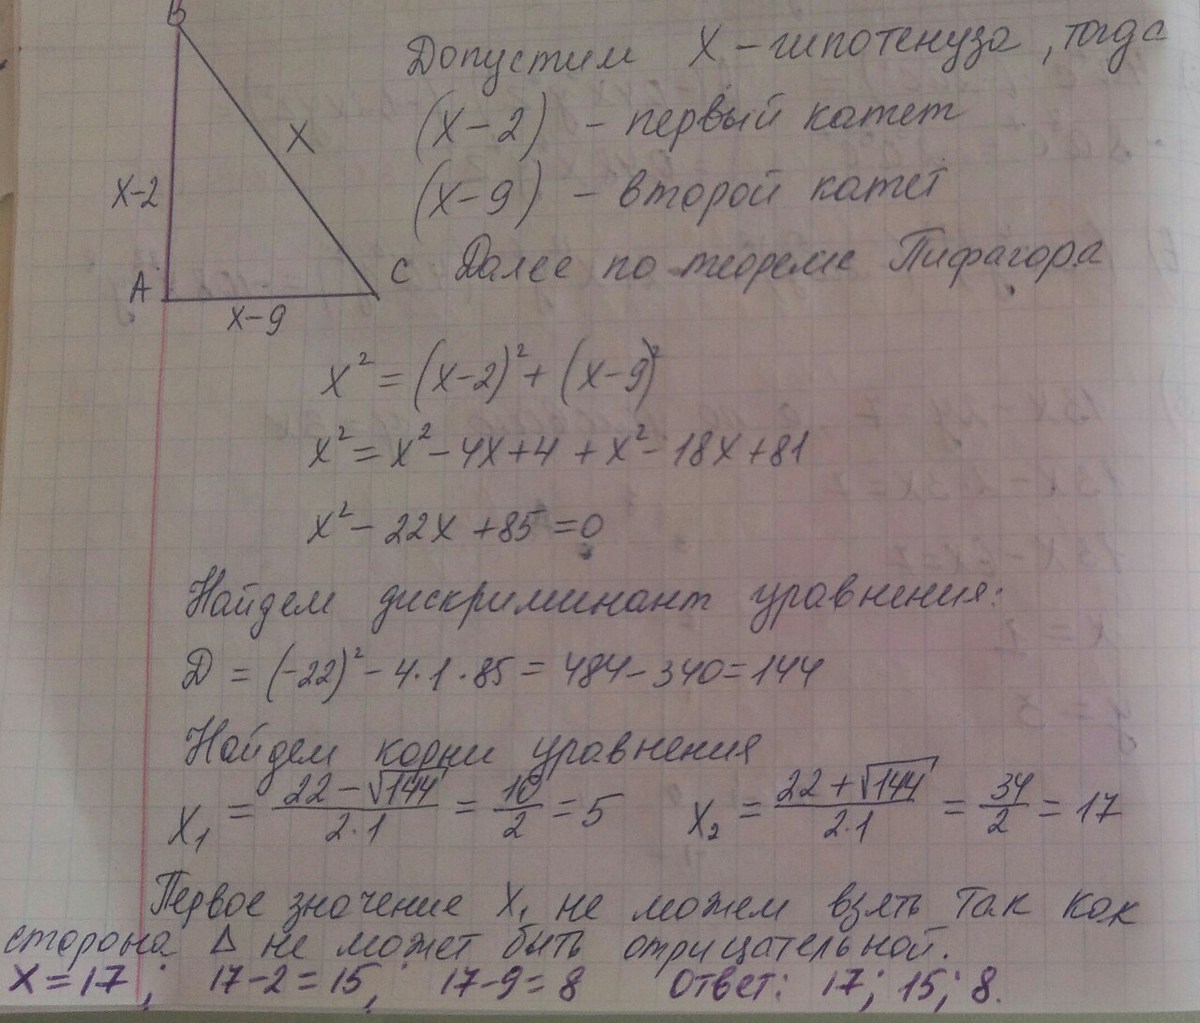 B
Допустим X – гипотенуза, тогда
(X – 2) – первый катет
X
(X – 9) – второй катет
X-2
A
C
Далее по теореме Пифагора
X-9
X² = (X-2)² + (X-9)²
X² = X² - 4X + 4 + X² - 18X + 81
X² - 22X + 85 = 0
Найдем дискриминант уравнения:
Д = (-22)² - 4·1·85 = 484 - 340 = 144
Найдем корни уравнения
X₁ = (22 - √144)/(2·1) = 10/2 = 5 X₂ = (22 + √144)/(2·1) = 34/2 = 17
Первое значение X₁ не можем взять так как
сторона Δ не может быть отрицательной.
X = 17; 17-2 = 15; 17-9 = 8 Ответ: 17; 15; 8.